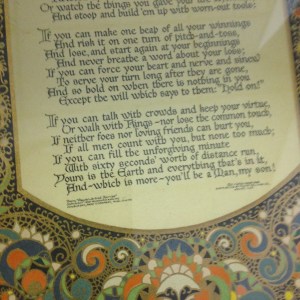 Or watch the things you gave your life
And stoop and build 'em up with worn-out tools:
If you can make one heap of all your winnings
And risk it on one turn of pitch-and-toss,
And lose, and start again at your beginnings
And never breathe a word about your loss;
If you can force your heart and nerve and sinew
To serve your turn long after they are gone,
And so hold on when there is nothing in you
Except the will which says to them: "Hold on!"
If you can talk with crowds and keep your virtue,
Or walk with Kings-nor lose the common touch,
If neither foes nor loving friends can hurt you,
If all men count with you, but none too much;
If you can fill the unforgiving minute
With sixty seconds' worth of distance run,
Yours is the Earth and everything that's in it,
And-which is more-you'll be a Man, my son!